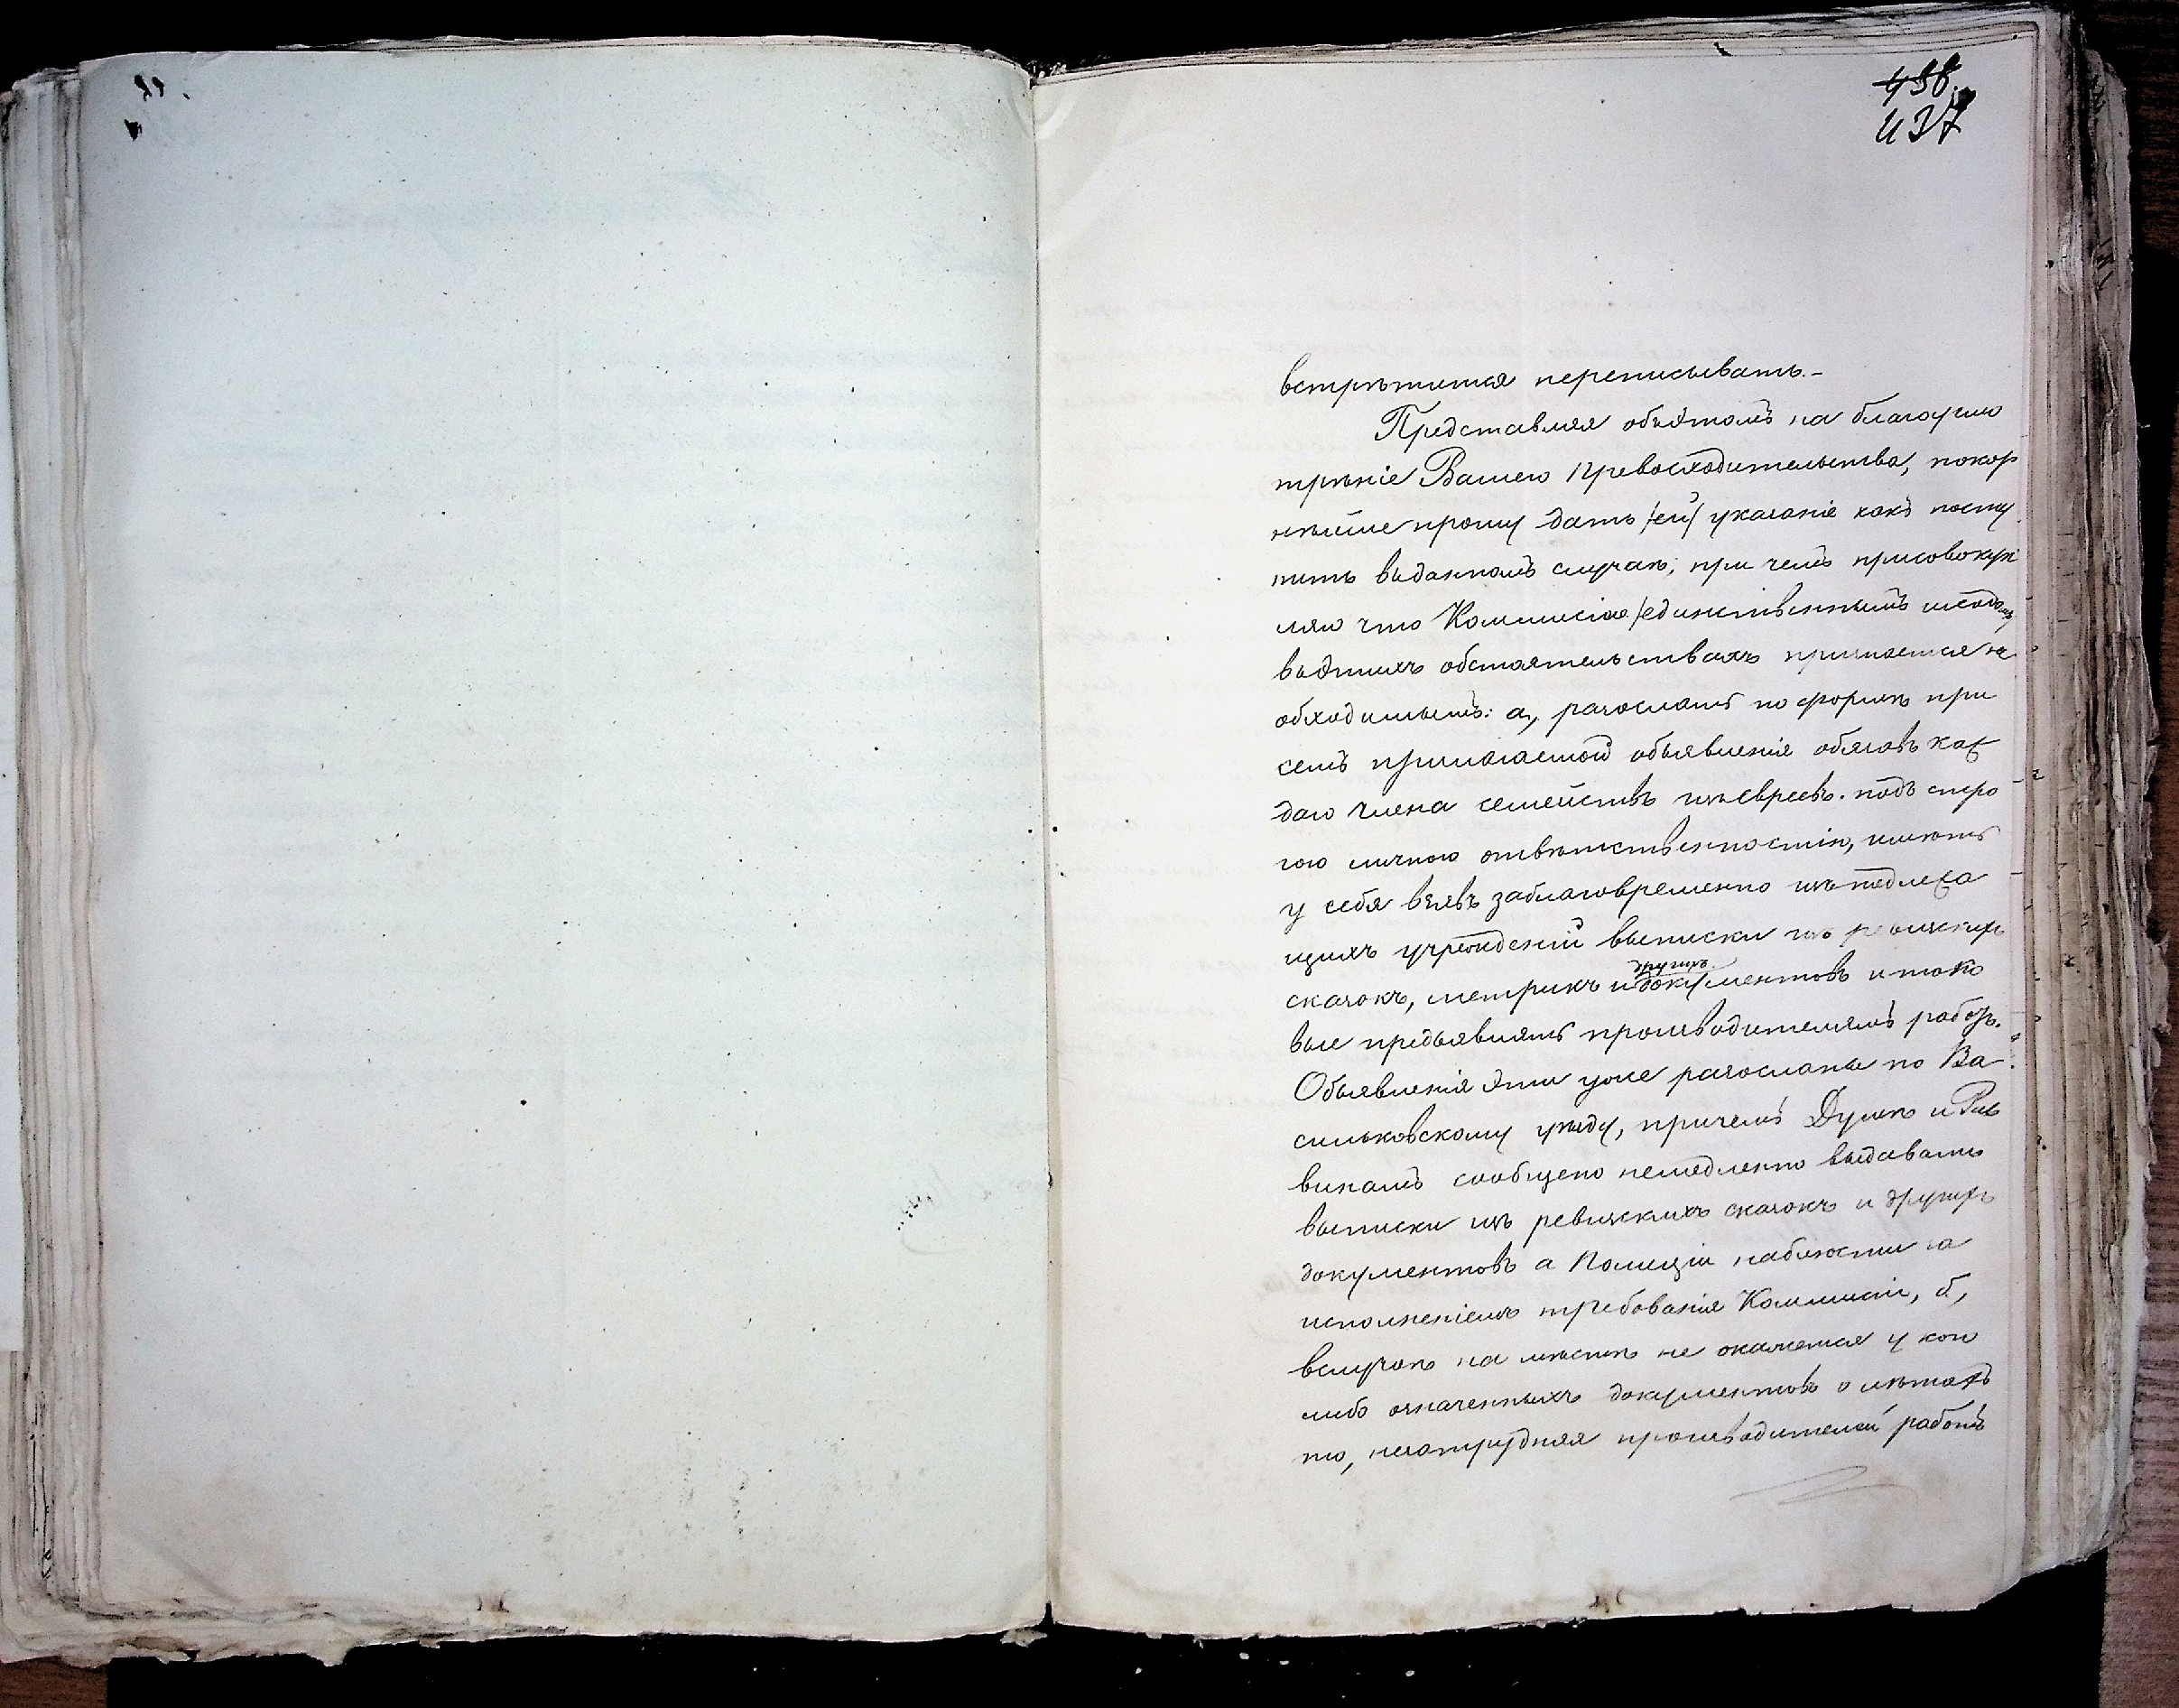 438.
437
встрѣтится переписывать.-
Представляя объэтомъ на благоусмо
трѣніе Вашего Превосходительства, покор
нѣйше прошу дать /ей/ указаніе какъ посту
пить въданномъ случаѣ; при чемъ присовокуп
ляю что Коммисіею /единственнымъ исходомъ
въэтихъ обстоятельствахъ признается не
обходимымъ: а, разослать по формѣ при
семъ прилагаемой объявленія обязавъ каж
даго члена семействъ изъевреевъ. подъ стро
гою личною отвѣтственностію, имѣть
у себя взявъ заблаговременно изъподлежа
щихъ учрежденій выписки изъ ревизскихъ
сказокъ, метрикъ и другихъ документовъ и тако
вые предъявлять производителямъ работъ.
Объявленія эти уже разосланы по Ва-
сильковскому уѣзду, причемъ Думѣ и Рав
винамъ сообщено немедленно выдавать
выписки изъ ревизскихъ сказокъ и другихъ
документовъ а Полиціи наблюсти за
исполненіемъ требованія Коммисіи, б,
вслучаѣ на мѣстѣ не окажется у кого
либо означенныхъ документовъ о лѣтахъ
то, незатрудняя производителей работъ